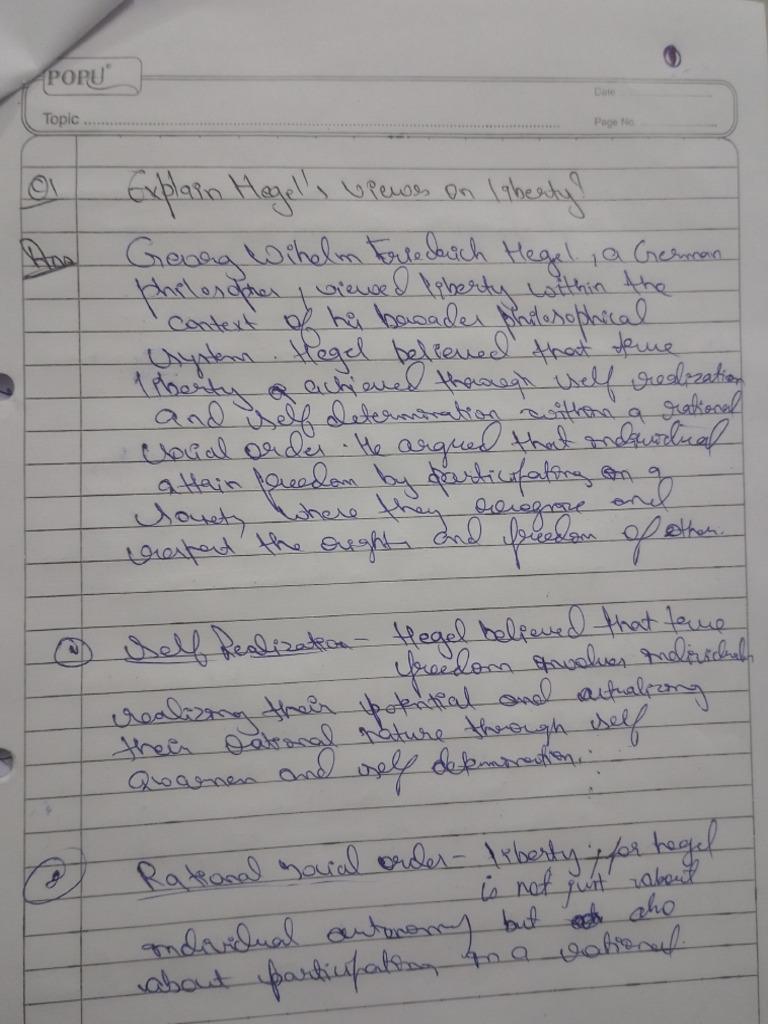 POPU
Date
Topic
Page No.
Q1 Explain Hegel's views on liberty?
Ans Georg Wihelm Friedrich Hegel, a German
philosopher, viewed liberty within the
context of his broader philosophical
system. Hegel believed that true
liberty achieved through self realization
and self determination within a rational
social order. He argued that individual
attain freedom by participating in a
society where they recognize and
respect the rights and freedom of other.
Self Realization - Hegel believed that true
freedom involves individuals
realizing their potential and actualizing
their rational nature through self
awarnen and self determination.
Rational social order - liberty, for hegel
is not just about
individual autonomy but also
about participating in a rational